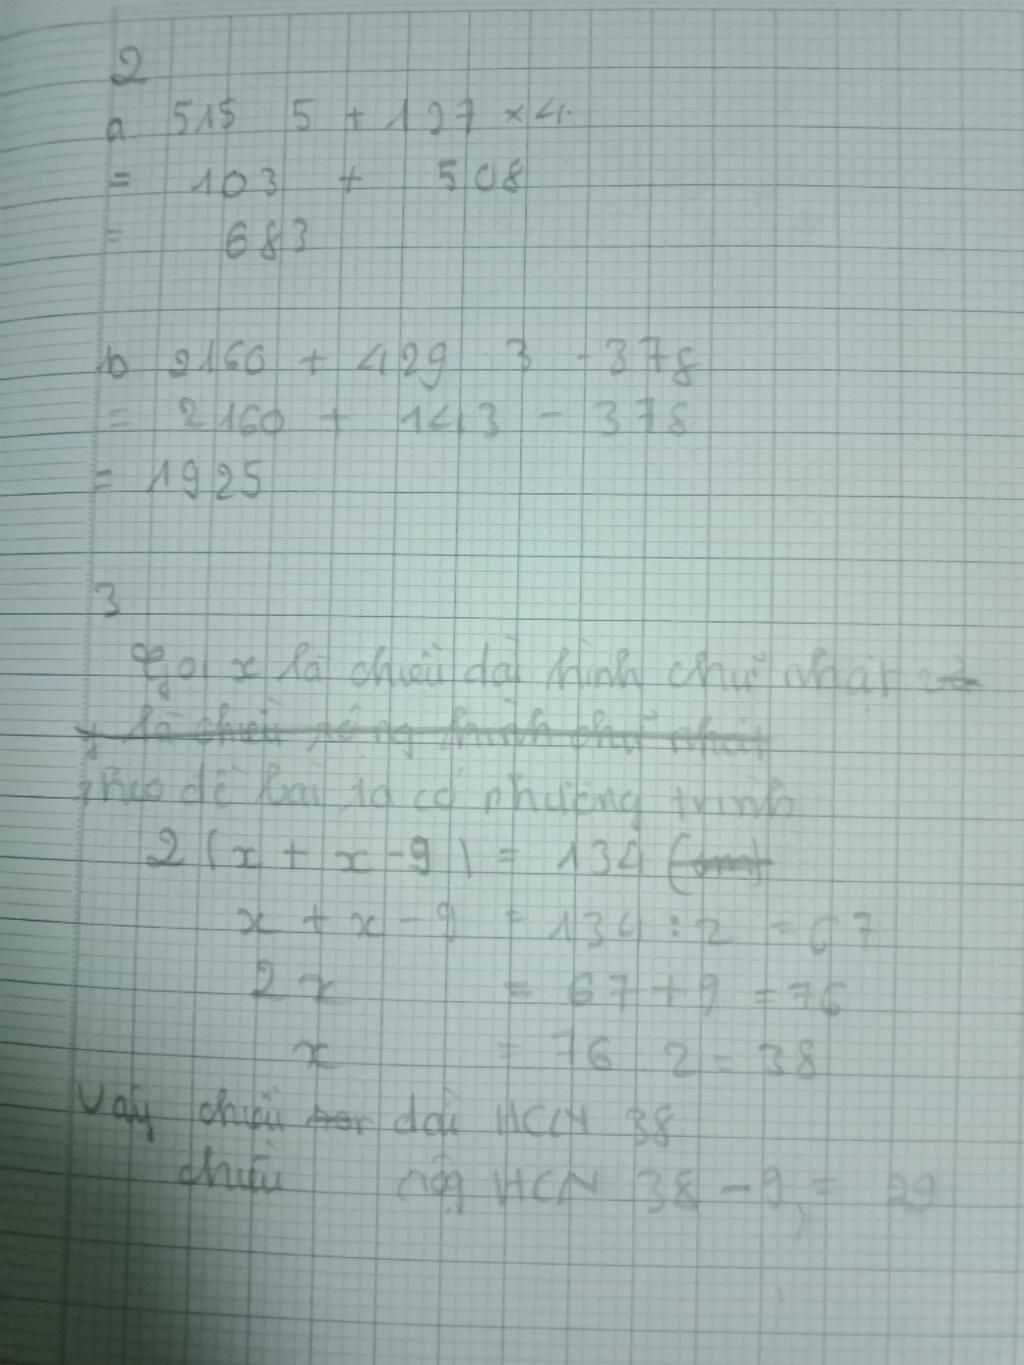 2
a 515 5 + 127 × 4
= 103 + 508
= 683
b 2160 + 429 3 - 378
= 2160 + 143 - 378
= 1925
3
Gọi x là chiều dài hình chữ nhật
y là chiều rộng hình chữ nhật
Theo đề bài ta có phương trình
2 ( x + x - 9 ) = 134
x + x - 9 = 134 : 2 = 67
2x = 67 + 9 = 76
x = 76 2 = 38
Vậy chiều dài HCN 38
chiều rộng HCN 38 - 9 = 29